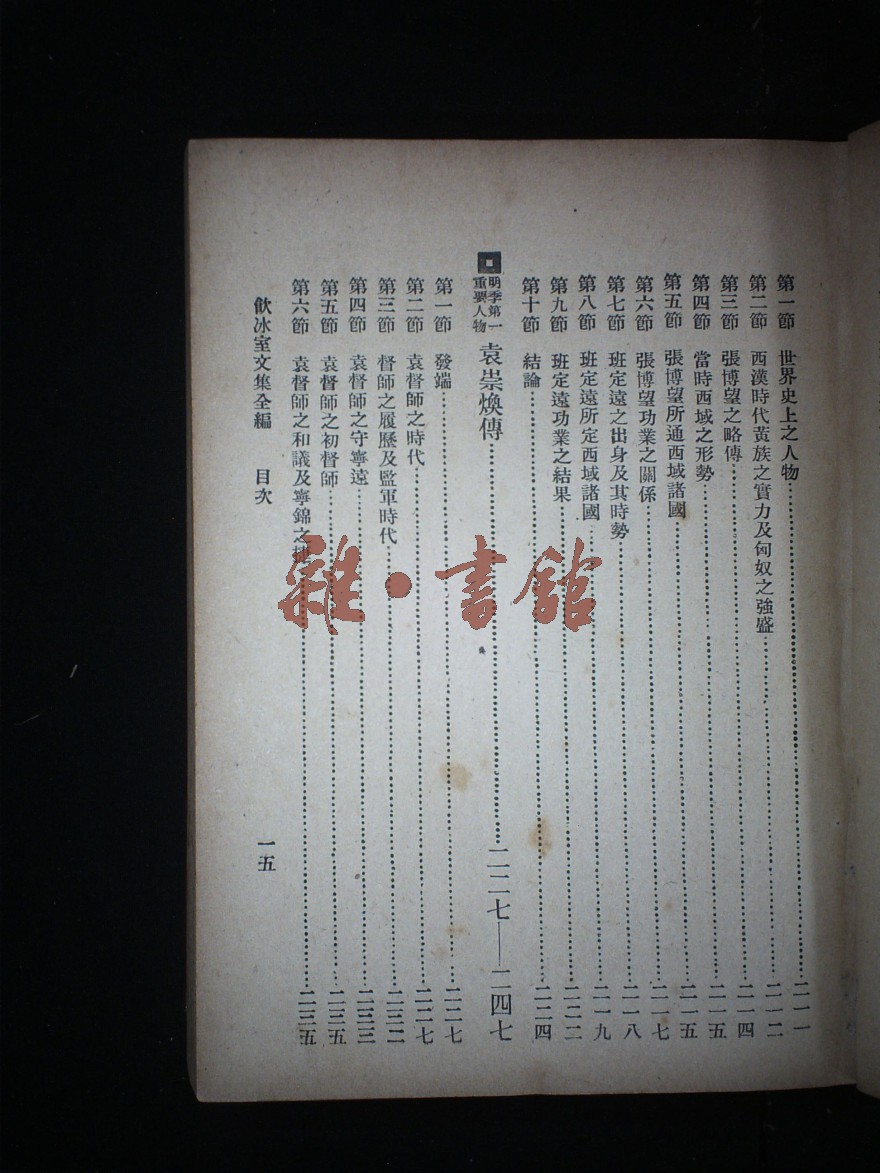 第一節 世界史上之人物……二一一
第二節 西漢時代黃族之實力及匈奴之強盛……二一二
第三節 張博望之略傳……二一四
第四節 當時西域之形勢……二一五
第五節 張博望所通西域諸國……二一五
第六節 張博望功業之關係……二一七
第七節 班定遠之出身及其時勢……二一八
第八節 班定遠所定西域諸國……二一九
第九節 班定遠功業之結果……二二二
第十節 結論……二二四
明季第一重要人物 袁崇煥傳……二二七—二四七
第一節 發端……二二七
第二節 袁督師之時代……二二七
第三節 督師之履歷及監軍時代……二三二
第四節 袁督師之守寧遠……二三三
第五節 袁督師之初督師……二三五
第六節 袁督師之和議及寧錦之捷……二三五
飲冰室文集全編 目次 一五
雜·書館